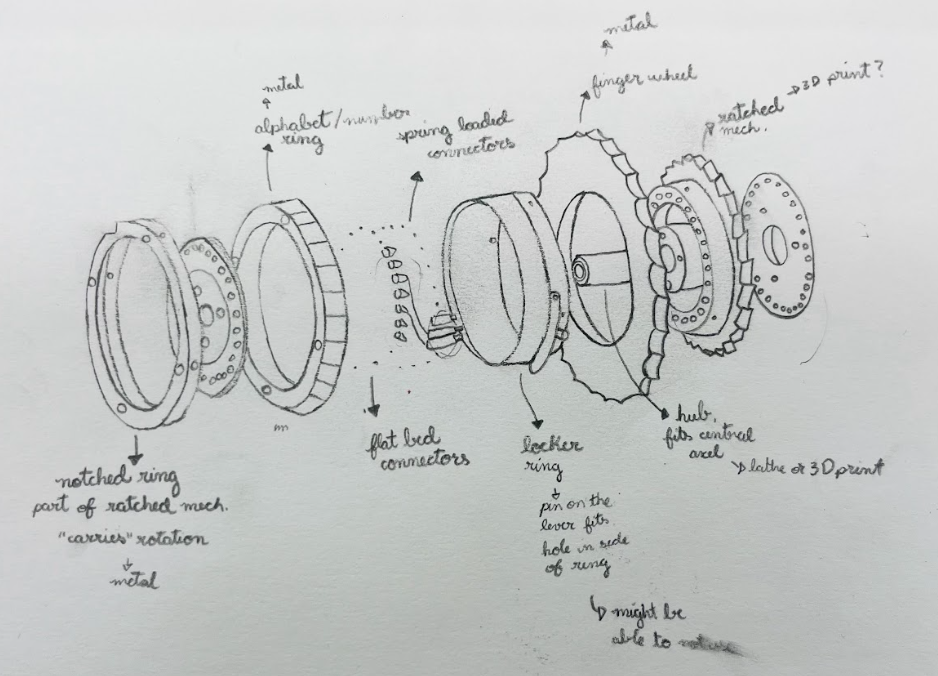 metal
finger wheel
3D print?
ratched
mech.
metal
alphabet/number
ring
spring loaded
connectors
notched ring
part of ratched mech.
"carries" rotation
metal
flat bed
connectors
locker
ring
pin on the
lever fits
hole in side
of ring
might be
able to
hub,
fits central
axel
lathe or 3D print